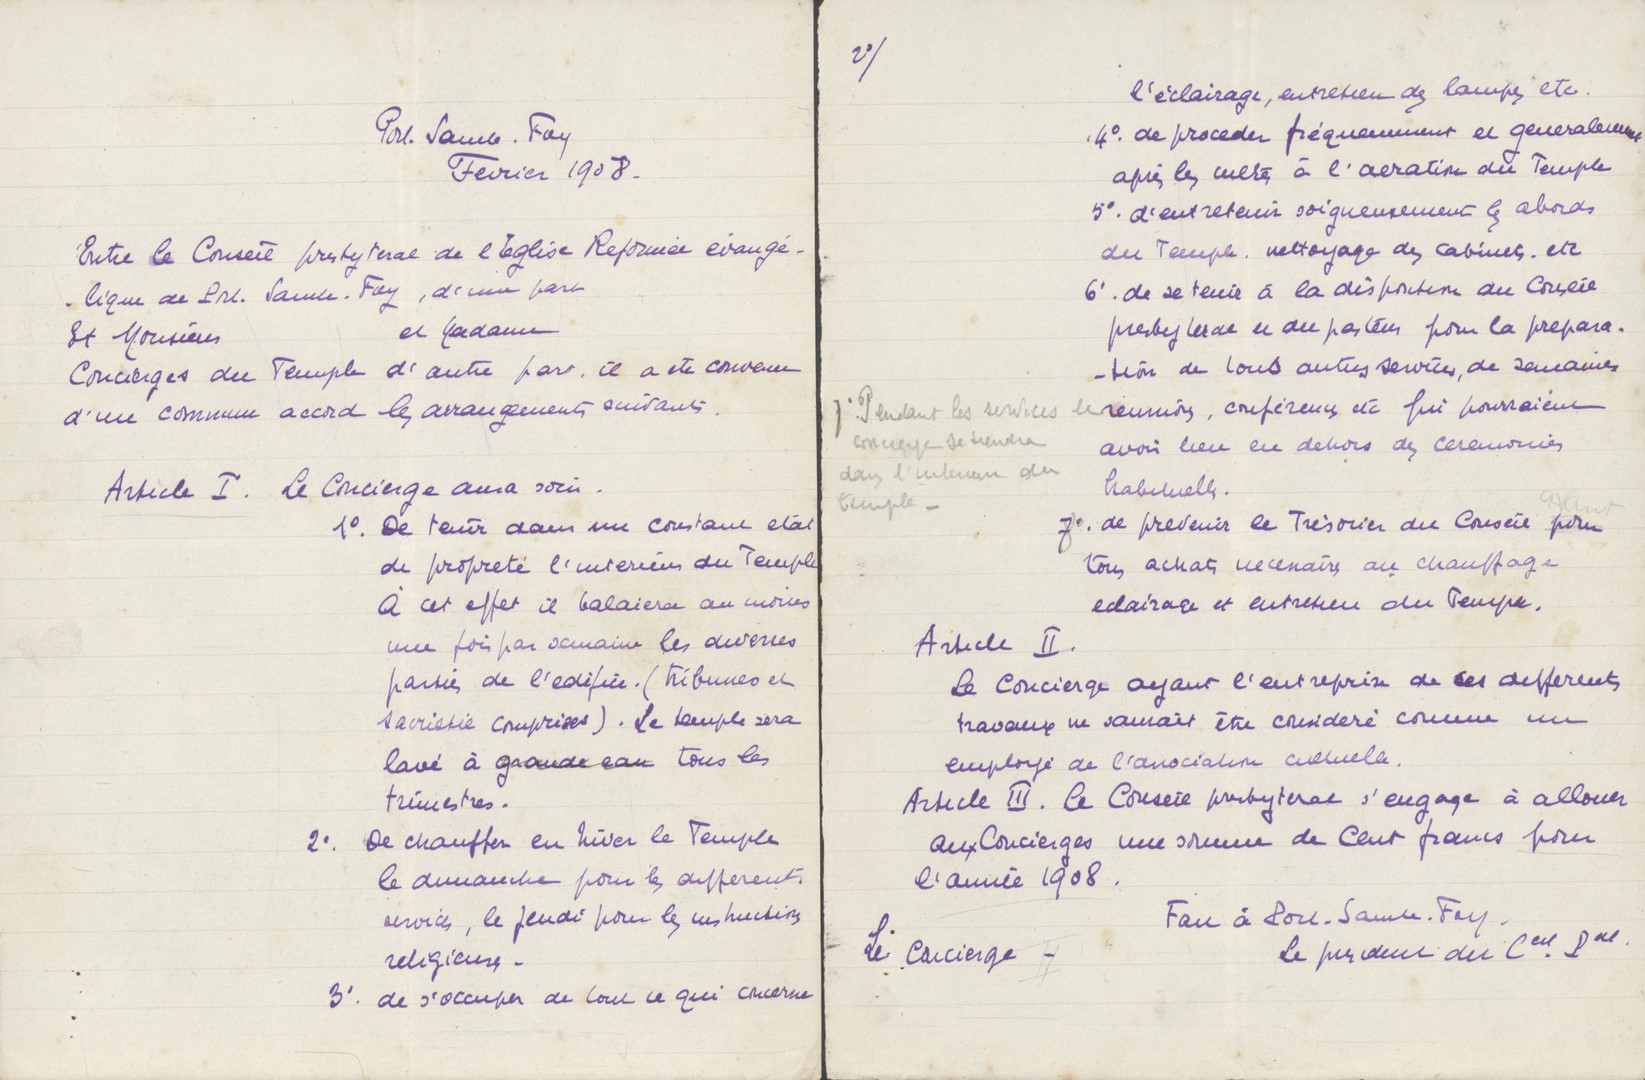 Port. Sainte. Foy
Fevrier 1908.
Entre le Conseil presbyteral de l'Eglise Reformée évangé-
-lique de Port. Sainte. Foy, d'une part
Et Monsieur et Madame
Concierges du Temple d'autre part. il a ete convenu
d'un commun accord les arrangements suivants.
Article I. Le Concierge aura soin.
1º. De tenir dans un constant etat
de propreté l'interieur du Temple
A cet effet il balaiera au moins
une fois par semaine les diverses
parties de l'edifice. (tribunes et
sacristie comprises). Le temple sera
lavé à grande eau tous les
trimestres.
2º. De chauffer en hiver le Temple
le dimanche pour les differents
services, le jeudi pour les instructions
religieuses -
3º. de s'occuper de tout ce qui concerne
2º/
l'éclairage, entretien des lampes etc.
4º. de proceder fréquemment et generalement
après les cultes à l'aeration du Temple
5º. d'entretenir soigneusement les abords
du Temple. nettoyage des cabinets. etc
6º. de se tenir à la disposition du Conseil
presbyteral et du pasteur pour la prepara-
-tion de tous autres services, de semaines
reunions, conférences etc qui pourraient
avoir lieu en dehors des ceremonies
habituelles.
7º. Pendant les services le
concierge se tiendra
dans l'interieur du
temple -
7º. de prevenir le Trésorier du Conseil pour
avant
tous achats necessaires au chauffage
eclairage et entretien du Temple.
Article II.
Le Concierge ayant l'entreprise de ces differents
travaux ne saurait être consideré comme un
employé de l'association cultuelle.
Article III. Le Conseil presbyteral s'engage à allouer
aux Concierges une somme de Cent francs pour
l'année 1908.
Fait à Port. Sainte. Foy.
Le Concierge - Le president du Ceil. Pral.